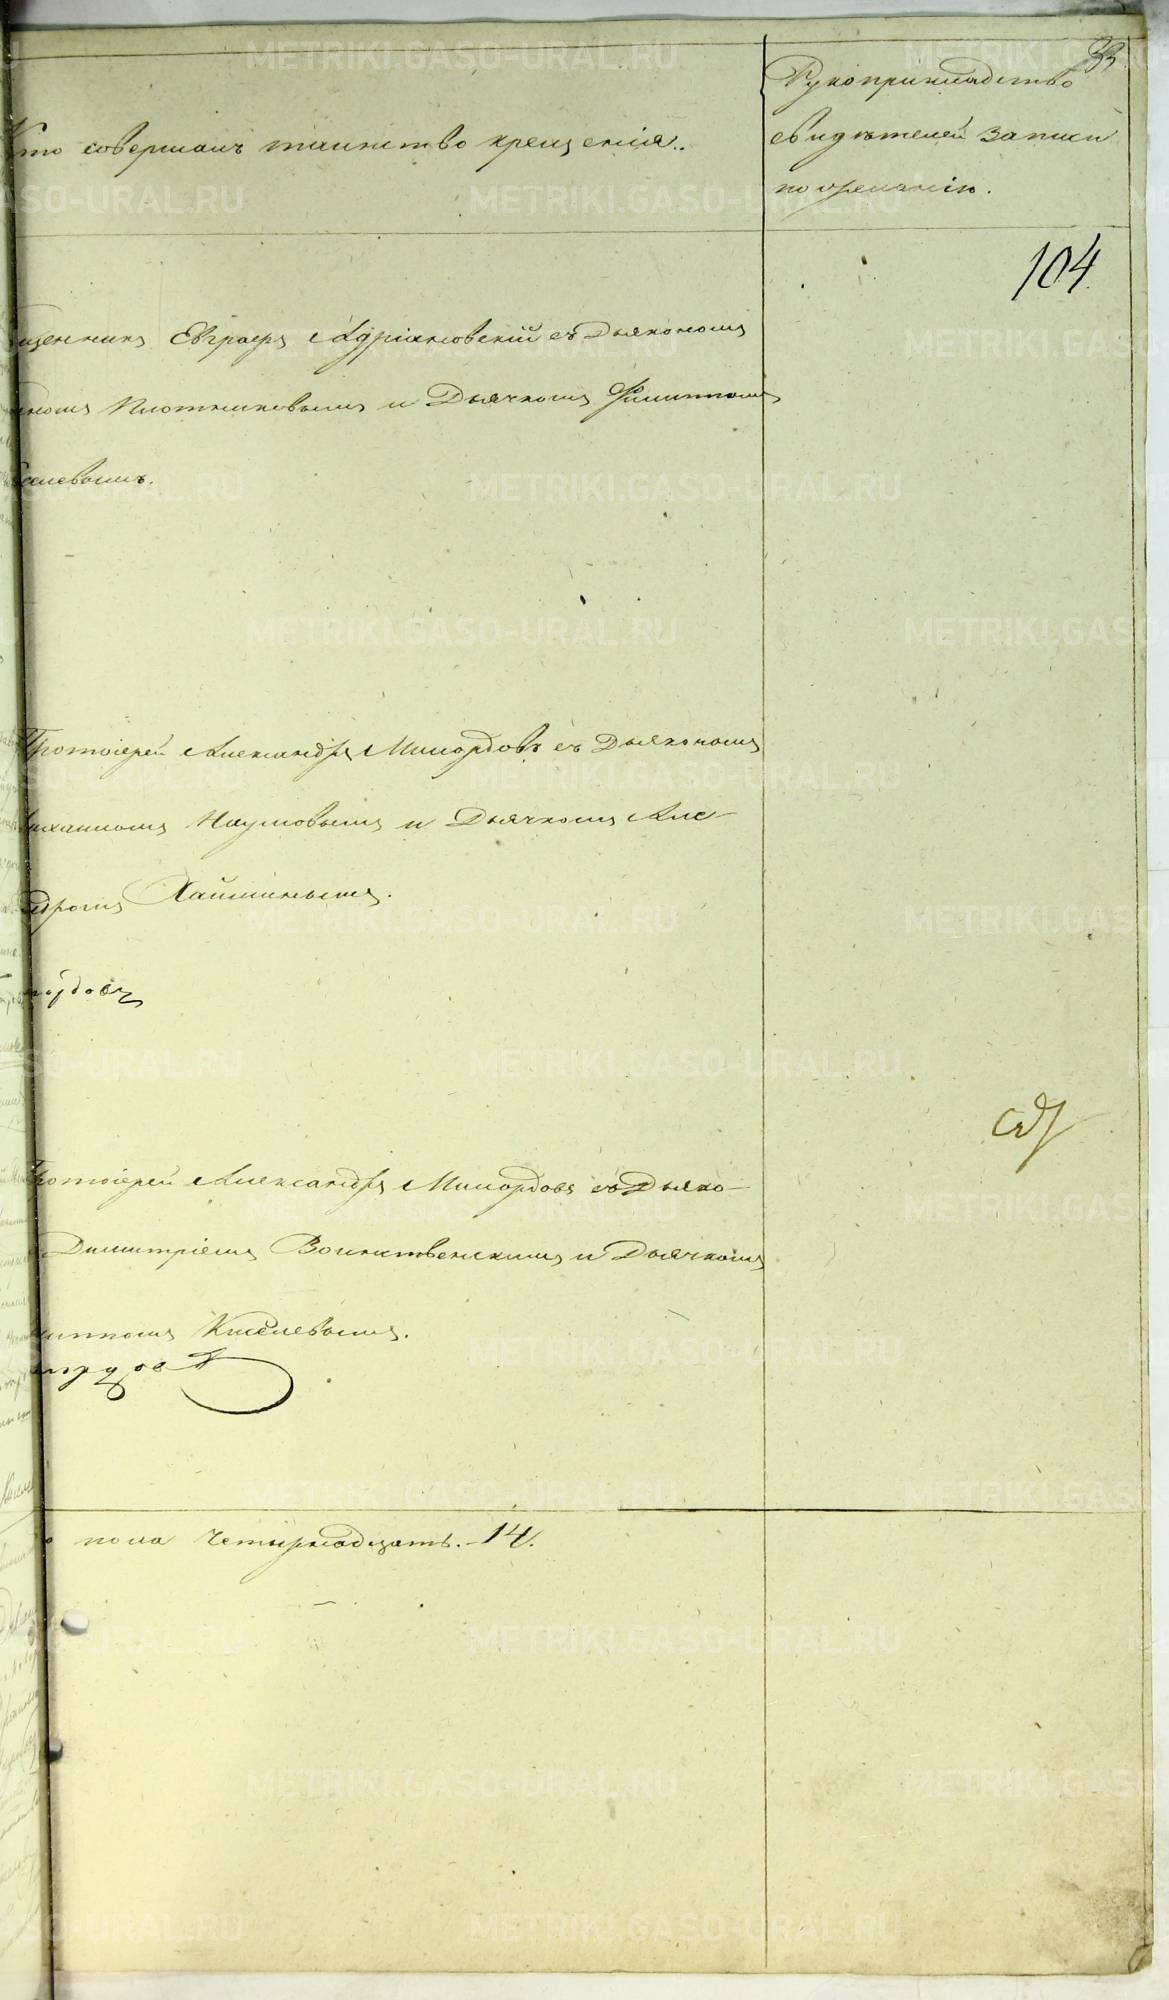 33
Рукоприкладство
Кто совершалъ таинство крещенія.
свидѣтелей записи
по желанію.
104
щенникъ Евграфъ Адріановскій съ Дьякономъ
Плотниковымъ и Дьячкомъ Филиппомъ
селевымъ.
Протоіерей Александръ Милордовъ съ Дьякономъ
ихаиломъ Наумовымъ и Дьячкомъ Алек-
ндромъ Хайминымъ.
лордовъ
Протоіерей Александръ Милордовъ съ Дьяко-
Димитріемъ Воинственскимъ и Дьячкомъ
липпомъ Киселевымъ.
лордовъ
о пола четырнадцать. 14.
METRIKI.GASO-URAL.RU